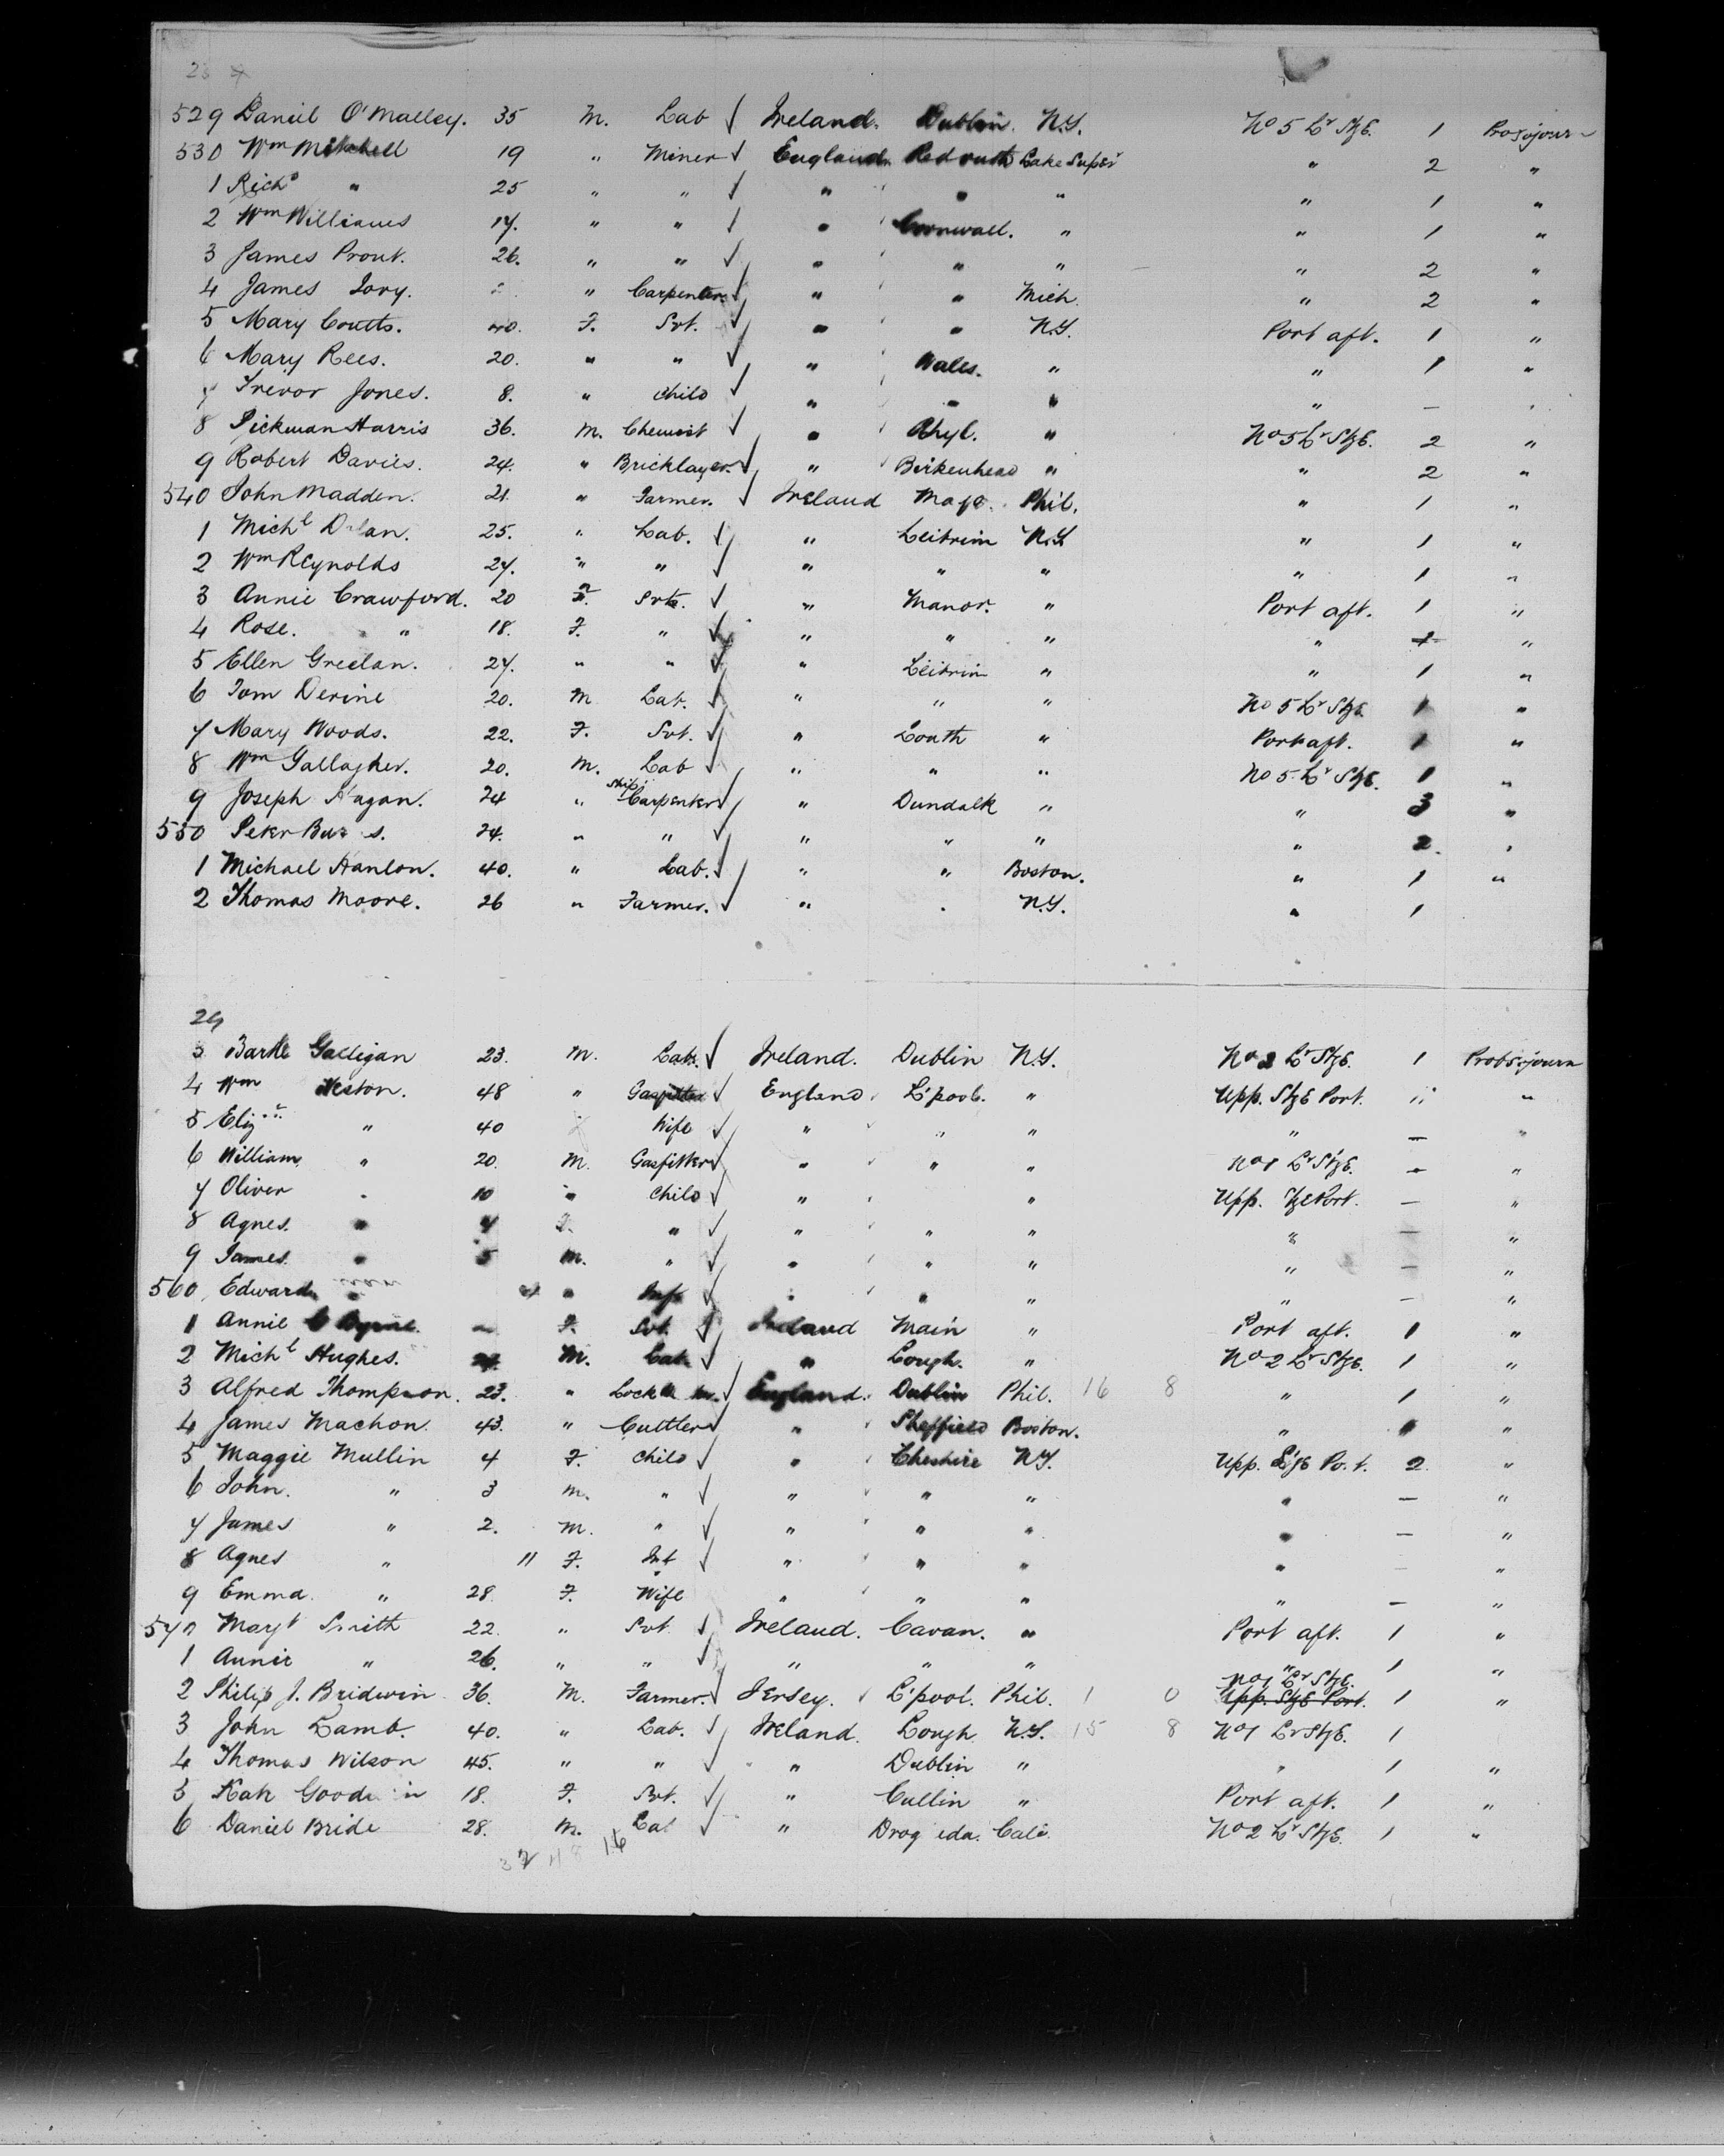 529 Daniel O'Malley. 35 M. Lab ✓ Ireland. Dublin. N.Y. No 5 Lr Stge. 1 Pro Sojourn
530 Wm Mitchell 19 " Miner ✓ England. Redruth Lake Supr " 2 "
1 Richd " 25 " " ✓ " " " " 1 "
2 Wm Williams 17. " " ✓ " Cornwall. " " 1 "
3 James Prout. 26. " " ✓ " " " " 2 "
4 James Ivry. " Carpenter ✓ " " Mich. " 2 "
5 Mary Coutts. 40. F. Svt. ✓ " " N.Y. Port aft. 1 "
6 Mary Rees. 20. " " ✓ " Wales. " " 1 "
7 Trevor Jones. 8. " Child ✓ " " " " —
8 Pickman Harris 36. M. Chemist ✓ " Rhyl. " No 5 Lr Stge. 2 "
9 Robert Davies. 24. " Bricklayer ✓ " Birkenhead " " 2 "
540 John Madden. 21. " Farmer. ✓ Ireland Mayo. Phil. " 1 "
1 Michl 25. " Lab. ✓ " Leitrim N.Y. " 1 "
2 Wm Reynolds 27. " " ✓ " " " " 1 "
3 Annie Crawford. 20 F. Svt. ✓ " Manor. " Port aft. 1 "
4 Rose. " 18. F. " ✓ " " " " 1 "
5 Ellen Greelan. 27. " " ✓ " Leitrim " " 1 "
6 Tom Devine 20. M Lab. ✓ " " " No 5 Lr Stge 1 "
7 Mary Woods. 22. F. Svt. ✓ " Louth " Port aft. 1 "
8 Wm Gallagher. 20. M. Lab ✓ " " " No 5 Lr Stge. 1 "
9 Joseph Hagan. 24 " Ship Carpenter ✓ " Dundalk " " 3 "
550 Peter 24. " " ✓ " " " " 2. "
1 Michael Hanlon. 40. " Lab. ✓ " " Boston. " 1 "
2 Thomas Moore. 26 " Farmer. ✓ " " N.Y. " 1
29
3 Bartle Galligan 23. M. Lab. ✓ Ireland. Dublin N.Y. No 2 Lr Stge. 1 Prob Sojourn
4 Wm Weston. 48 " Gasfitter ✓ England. L'pool. " Upp. Stge Port. " "
5 Eliz " 40 Wife ✓ " " " " — "
6 William " 20. M. Gasfitter ✓ " " " No 1 Lr Stge. — "
7 Oliver " 10 " Child ✓ " " Upp. Stge Port. — "
8 Agnes. " 4 F. " ✓ " " " " — "
9 James. " 5 M. " ✓ " " " " — "
560 Edward " " Inft ✓ " " " " — "
1 Annie Byrne. F. Svt. ✓ Ireland Main " Port aft. 1 "
2 Michl Hughes. M. Lab. ✓ " Lough. " No 2 Lr Stge. 1 "
3 Alfred Thompson. 23. " ✓ England. Dublin Phil. 16 8 " 1 "
4 James Machon. 43. " Cuttler ✓ " Sheffield Boston. " "
5 Maggie Mullin 4 F. Child ✓ " Cheshire N.Y. Upp. Stge Port. 2 "
6 John. " 3 M. " ✓ " " " " — "
7 James " 2. M. " ✓ " " " " — "
8 Agnes " 11 F. Inf ✓ " " " " — "
9 Emma. " 28. F. Wife " " " " — "
570 Mart Smith 22. " Svt. ✓ Ireland. Cavan. " Port aft. 1 "
1 Annie " 26. " " ✓ " " " " 1 "
2 Philip J. Bridwin 36. M. Farmer. ✓ Jersey. L'pool. Phil. 1 0 No 1 Lr Stge. Upp. Stge Port. 1 "
3 John Lamb. 40. " Lab. ✓ Ireland. Lough N.Y. 15 8 No 1 Lr Stge. 1
4 Thomas Wilson 45. " " ✓ " Dublin " " 1 "
5 Kate Goodwin 18. F. Svt. ✓ " Cullin " Port aft. 1 "
6 Daniel Bride 28. M. Lab ✓ " Drogeda. Cali. No 2 Lr Stge. 1 "
16